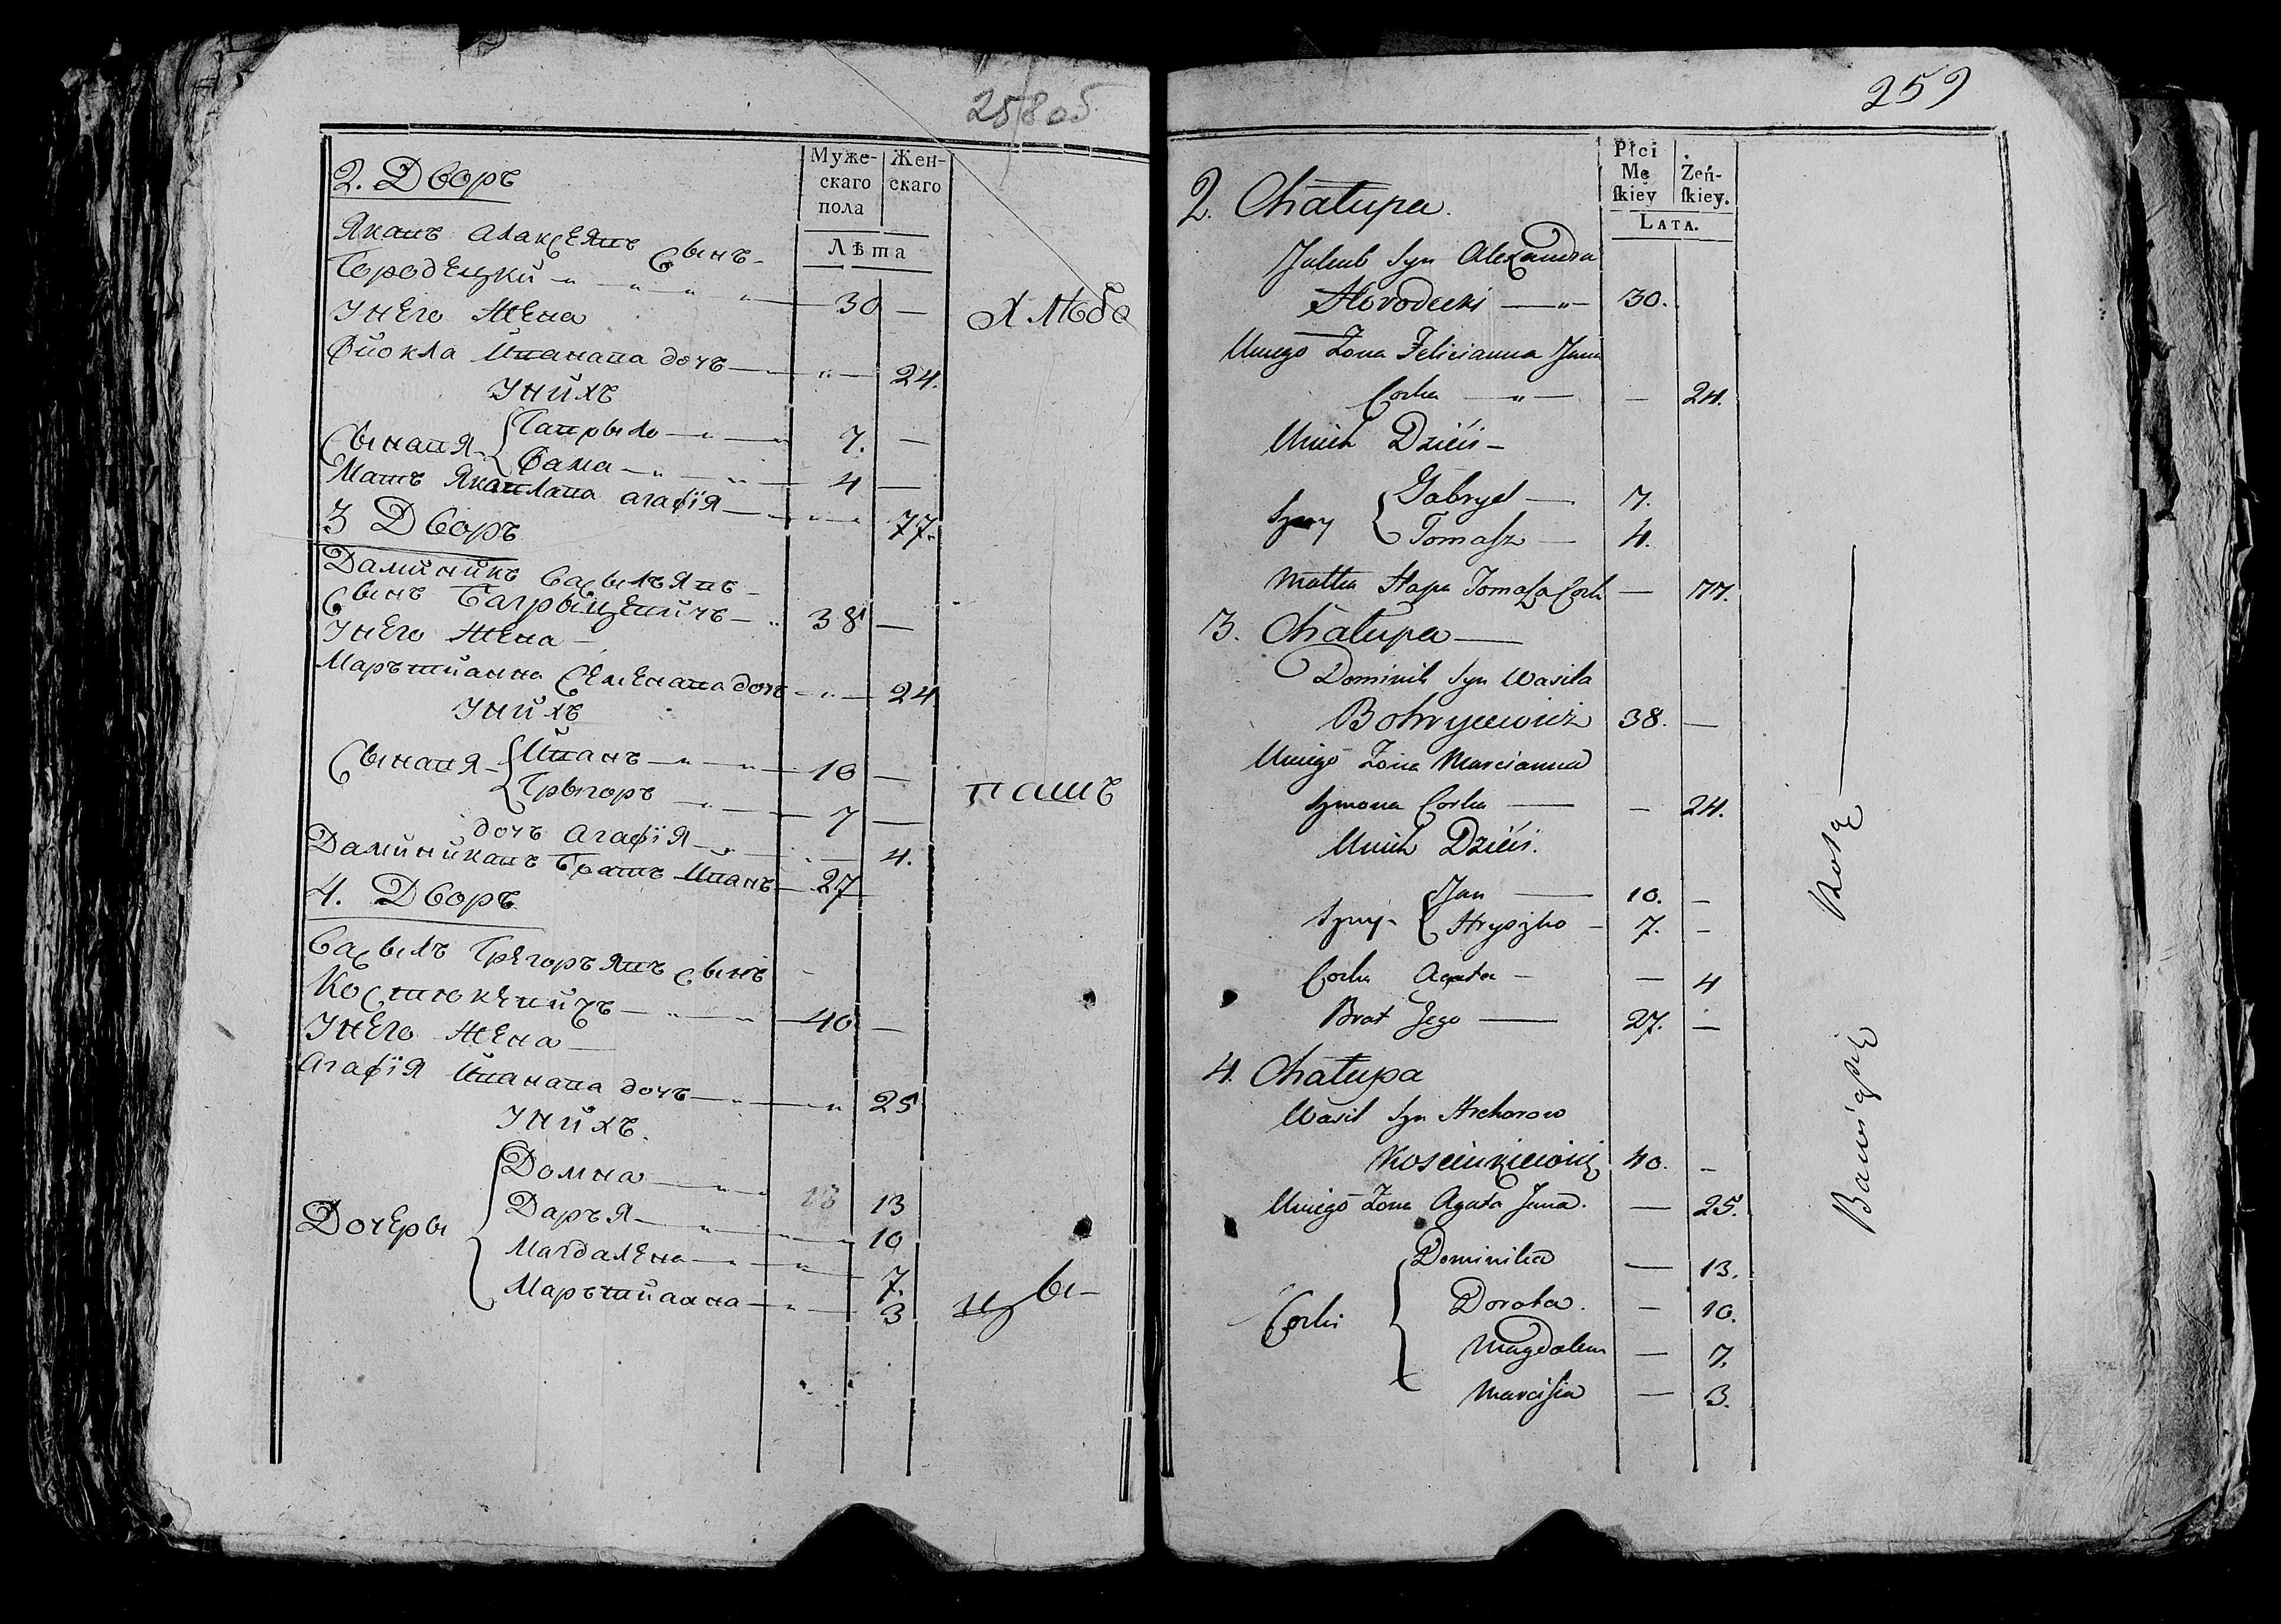 258 об
2. Дворъ
Муже-
скаго
пола
Жен-
скаго
Лѣта
Якапъ Алаксеяпъ Сынъ
Городецки 30 —
У него Жена
Фиокла Ипанапа дочъ — 24.
У нихъ
Сынапя { Гапрыло 7. —
Фама 4 —
Мать Якаплапа Агафія 77.
Хлѣба
3 Дворъ
Даминикъ Васыльяпъ
Сынъ Багрыцепичъ 38 —
У него Жена —
Маръшианна Семенапа дочъ — 24
У нихъ
Сынапя { Ипанъ 10 —
Грыгоръ 7 —
дочъ Агафія — 4.
Даминикапъ Братъ Ипанъ 27
пашъ
4. Дворъ
Васылъ Грегоръяпъ сынъ
Костюкепичъ 40 —
У него Жена —
Агафія Ипанапа дочъ 25
У нихъ.
Дочеры { Домна 13
Даръя 10
Магдалена 7.
Маръшианна 3
259
2. Chałupa.
Płci
Mę
ſkiey
Żeń-
ſkiey.
LATA.
Jakub Syn Alexandra
Horodecki — 30.
Uniego Żona Felicianna Jana
Corka — — 24.
Unich Dzieci —
Syny { Gabryel — 7.
Tomaſz — 4.
Matka Hapa Tomaſza Corka — 77.
3. Chałupa —
Dominik Syn Wasila
Bohrycewicz 38. —
Unięgo Żona Marcianna
Szmona Corka — — 24.
Unich Dzieci.
Syny { Jan — 10. —
Hryszko — 7. —
Corka Agata — — 4
Brat Jego — 27. —
4. Chałupa
Wasil Syn Hrehorow
Kosciukiewicz 40. —
Unięgo Żona Agata Jana. — 25.
Corki { Dominika — 13.
Dorota. — 10.
Magdalena — 7.
Marcisia — 3.